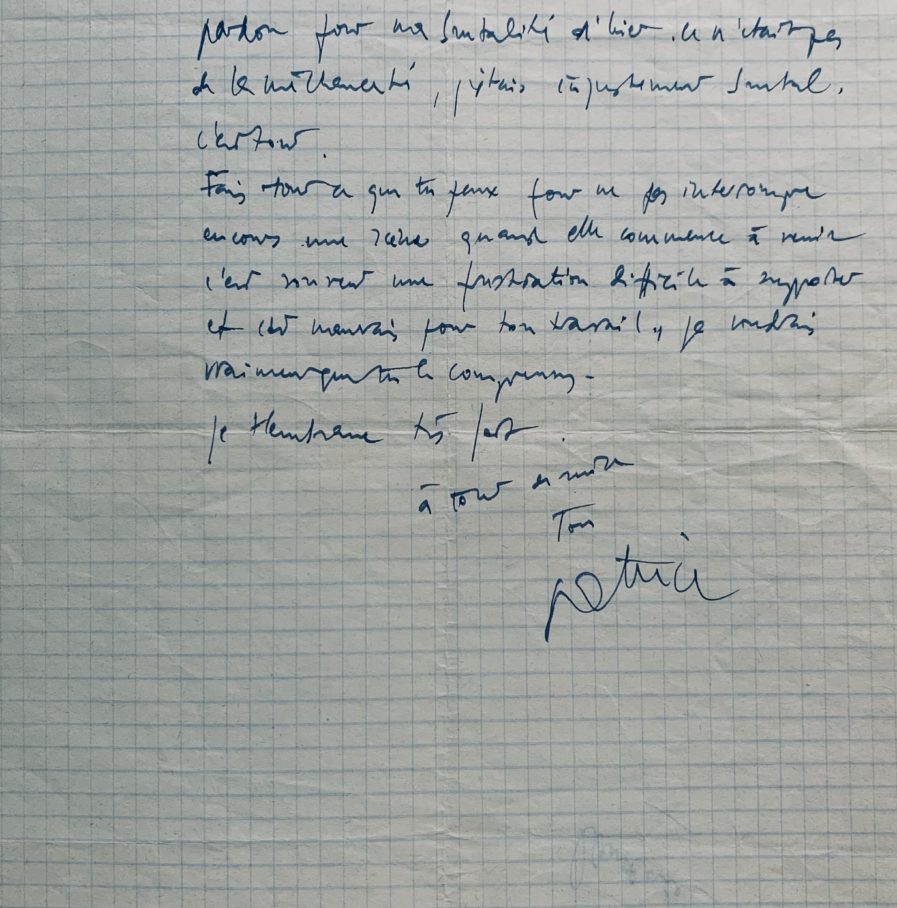 pardon pour ma brutalité d'hier. ce n'était pas
de la méchanceté, j'étais injustement brutal.
c'est tout.
Fais tout ce que tu peux pour ne pas interrompre
encours une scène quand elle commence à venir
c'est souvent une frustration difficile à supporter
et c'est mauvais pour ton travail, je voudrais
vraiment que tu le comprennes -
je t'embrasse très fort.
à tout de suite
Ton
patrice